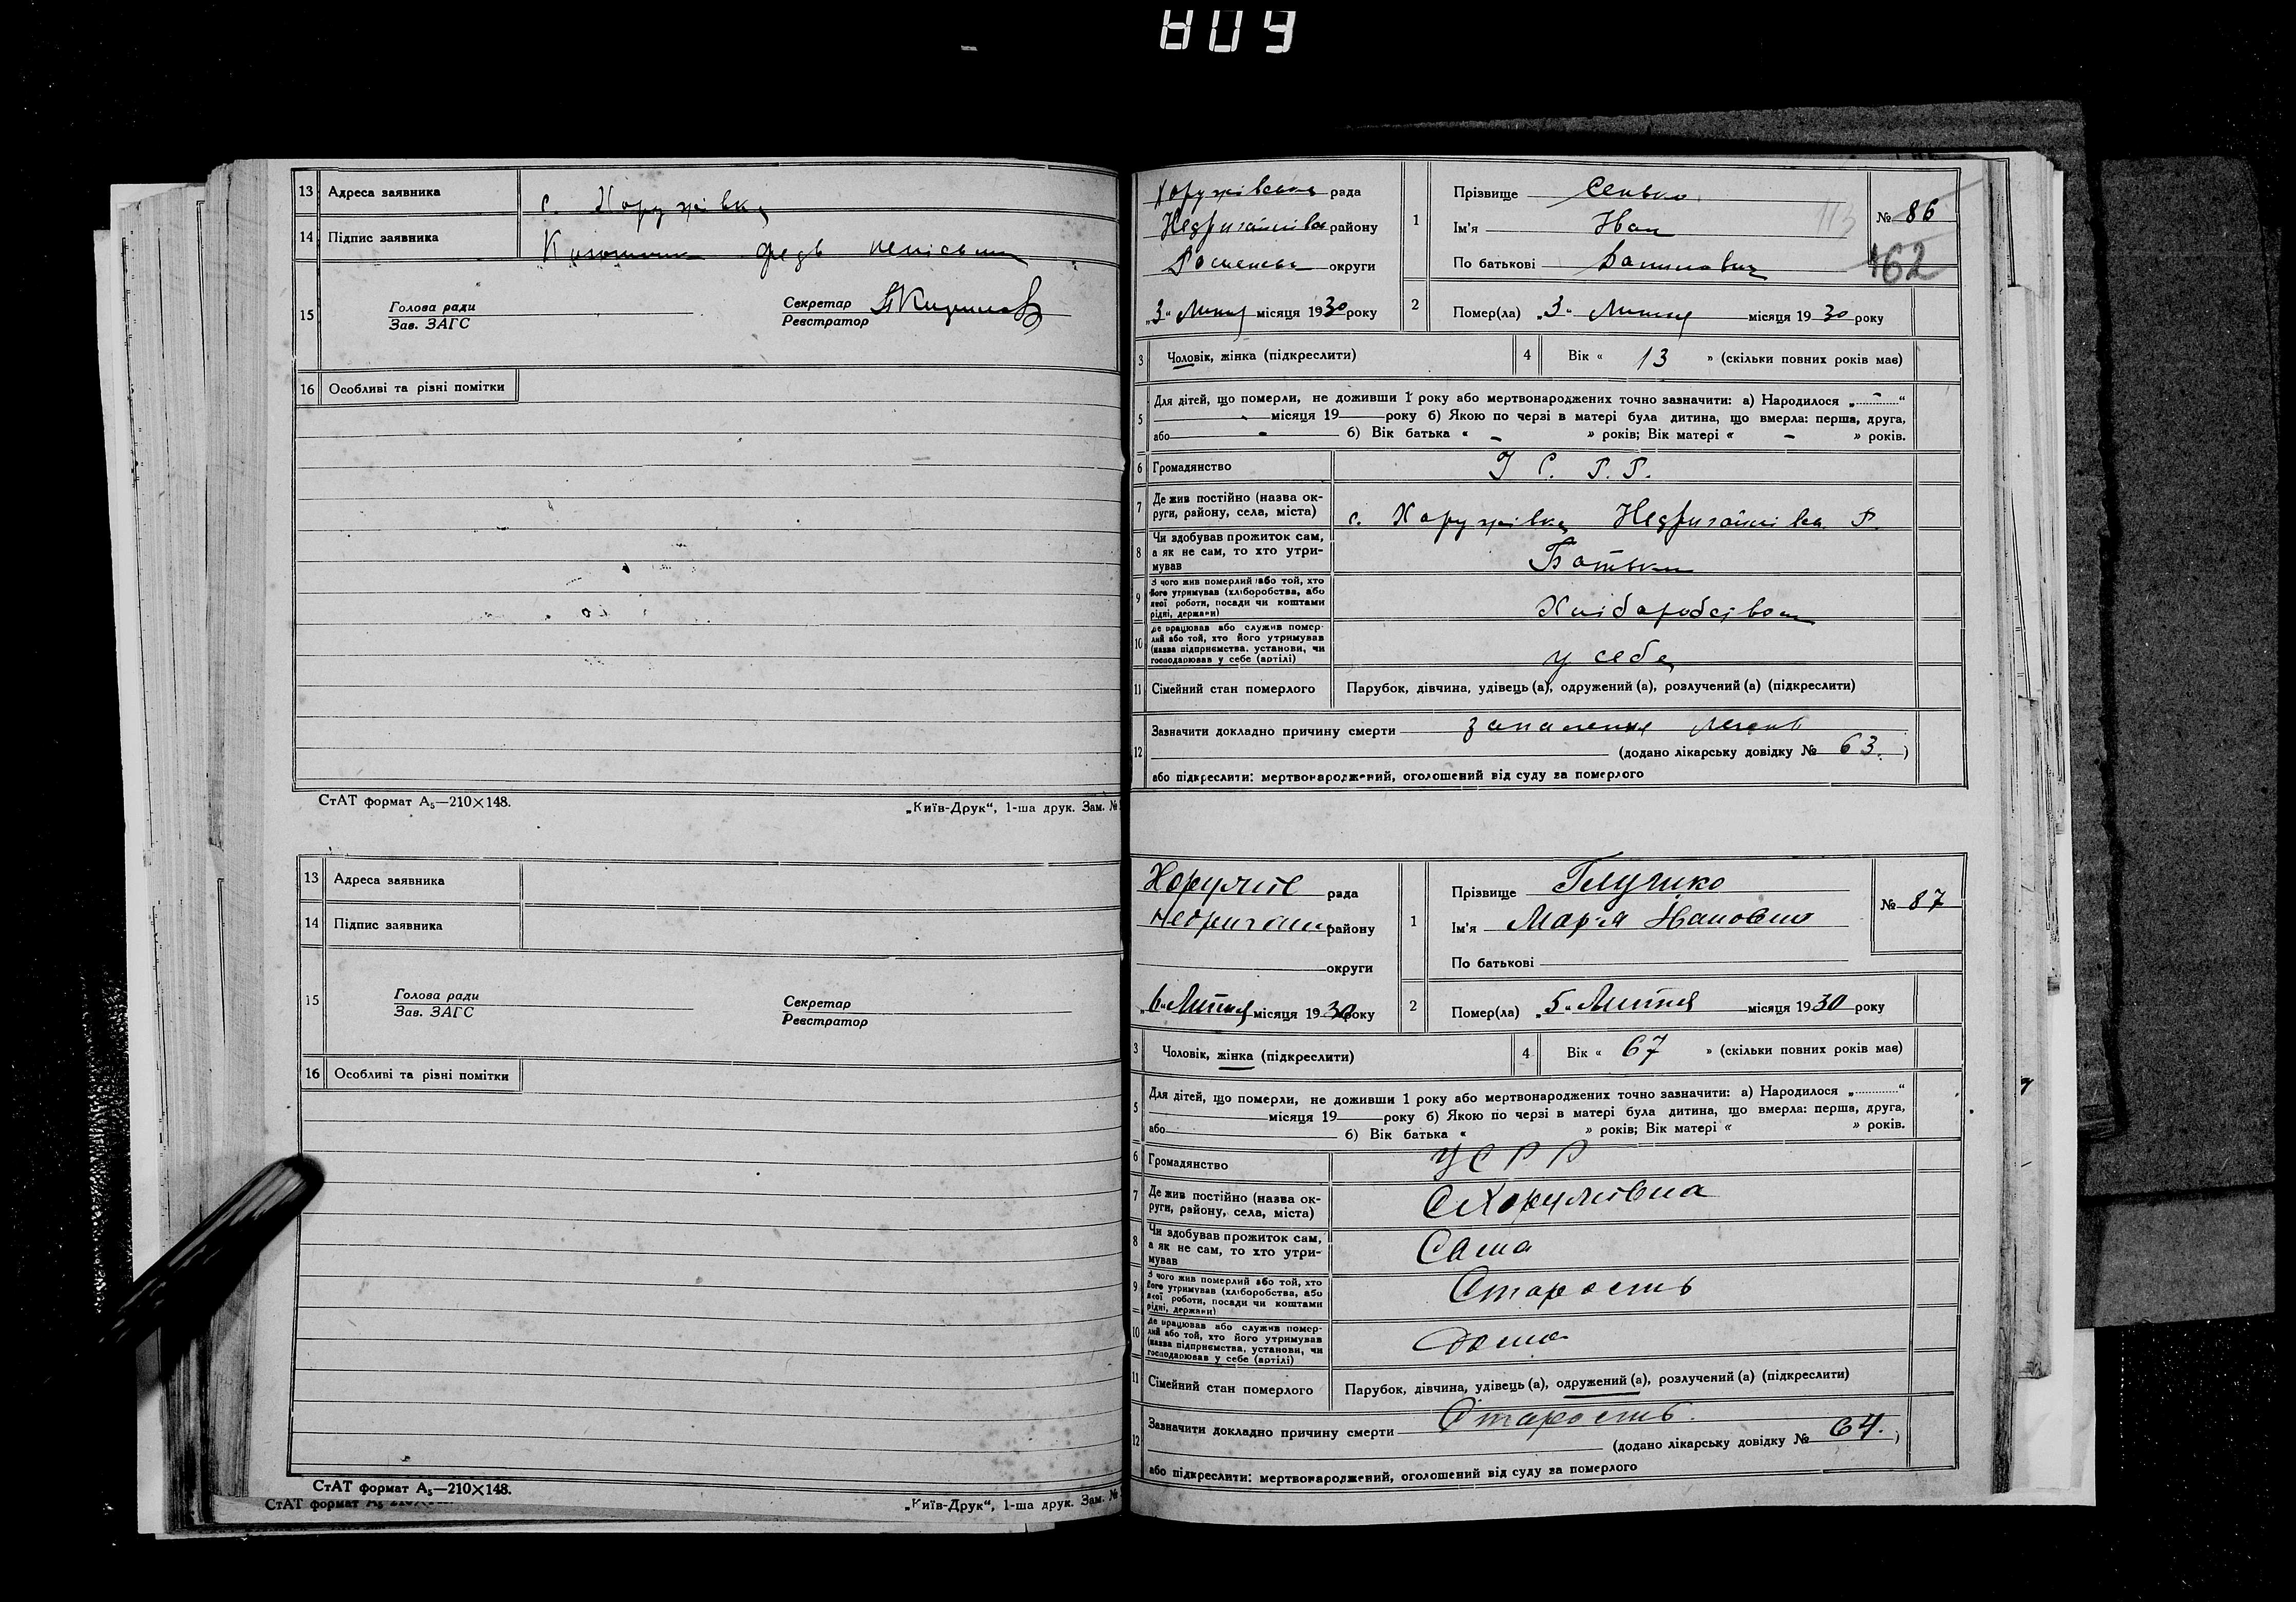 809
13 Адреса заявника с. Хоружівка
14 Підпис заявника
15 Голова ради Секретар
Зав. ЗАГС Реєстратор
16 Особливі та різні помітки
СтАТ формат А₅—210×148. „Київ-Друк“, 1-ша друк. Зам. №
13 Адреса заявника
14 Підпис заявника
15 Голова ради Секретар
Зав. ЗАГС Реєстратор
16 Особливі та різні помітки
СтАТ формат А₅—210×148.
СтАТ формат А₅
„Київ-Друк“, 1-ша друк. Зам. №
Хоружівська рада
району
округи
„3“ Липня місяця 1930 року
1 Прізвище Сенько
Ім'я Іван
По батькові
113
№ 86
162
2 Помер(ла) „3“ Липня місяця 1930 року
3 Чоловік, жінка (підкреслити) 4 Вік « 13 » (скільки повних років має)
5 Для дітей, що померли, не доживши 1 року або мертвонароджених точно зазначити: а) Народилося „ - “
- місяця 19 року б) Якою по черзі в матері була дитина, що вмерла: перша, друга,
або - б) Вік батька « - » років; Вік матері « - » років.
6 Громадянство У С. Р. Р.
7 Де жив постійно (назва ок-
руги, району, села, міста) с. Хоружівка Недригайлівськ. Р.
8 Чи здобував прожиток сам,
а як не сам, то хто утри-
мував Батьки
9 З чого жив померлий або той, хто
його утримував (хліборобства, або
якої роботи, посади чи коштами
рідні, держави) Хліборобством
10 Де працював або служив помер-
лий або той, хто його утримував
(назва підприємства, установи, чи
господарював у себе (артілі) у себе
11 Сімейний стан померлого Парубок, дівчина, удівець (а), одружений (а), розлучений (а) (підкреслити)
12 Зазначити докладно причину смерти запалення легенів
(додано лікарську довідку № 63. )
або підкреслити: мертвонароджений, оголошений від суду за померлого
рада
району
округи
„6“ Липня місяця 1930 року
1 Прізвище
Ім'я Мар'я Івановна
По батькові
№ 87
2 Помер(ла) „5“ Липня місяця 1930 року
3 Чоловік, жінка (підкреслити) 4 Вік « 67 » (скільки повних років має)
5 Для дітей, що померли, не доживши 1 року або мертвонароджених точно зазначити: а) Народилося „ “
місяця 19 року б) Якою по черзі в матері була дитина, що вмерла: перша, друга,
або б) Вік батька « » років; Вік матері « » років.
6 Громадянство УСРР
7 Де жив постійно (назва ок-
руги, району, села, міста) С Хоружівка
8 Чи здобував прожиток сам,
а як не сам, то хто утри-
мував Сама
9 З чого жив померлий або той, хто
його утримував (хліборобства, або
якої роботи, посади чи коштами
рідні, держави) Старость
10 Де працював або служив помер-
лий або той, хто його утримував
(назва підприємства, установи, чи
господарював у себе (артілі) дома
11 Сімейний стан померлого Парубок, дівчина, удівець (а), одружений (а), розлучений (а) (підкреслити)
12 Зазначити докладно причину смерти Старость.
(додано лікарську довідку № 64. )
або підкреслити: мертвонароджений, оголошений від суду за померлого